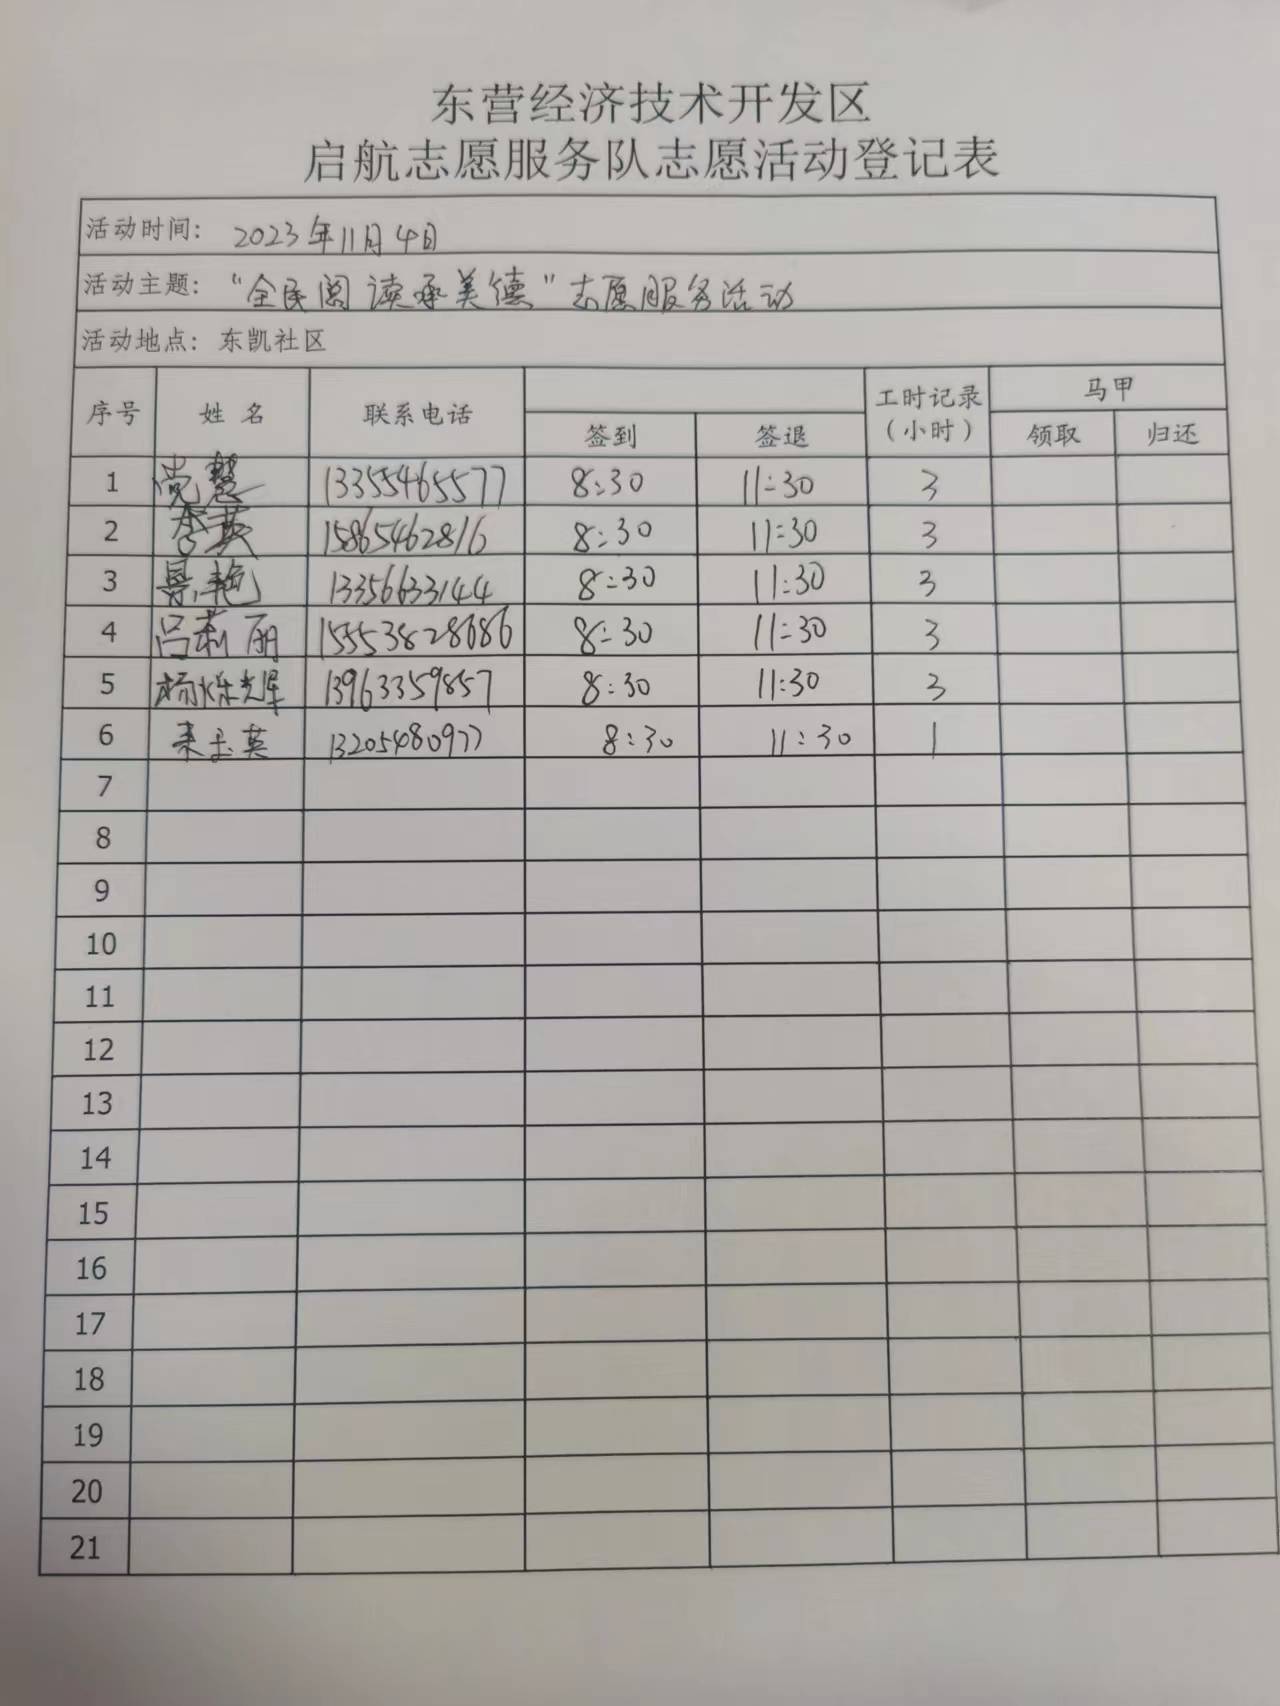 东营经济技术开发区
启航志愿服务队志愿活动登记表
活动时间: 2023年11月4日
活动主题: "全民阅读承美德"志愿服务活动
活动地点: 东凯社区
序号 姓名 联系电话 工时记录(小时) 马甲
签到 签退 领取 归还
1 尚慧 13355465577 8:30 11:30 3
2 李英 15865462816 8:30 11:30 3
3 景艳 13356633144 8:30 11:30 3
4 吕莉丽 15553828686 8:30 11:30 3
5 杨烁光辉 13963359857 8:30 11:30 3
6 玉英 13205480977 8:30 11:30 1
7
8
9
10
11
12
13
14
15
16
17
18
19
20
21